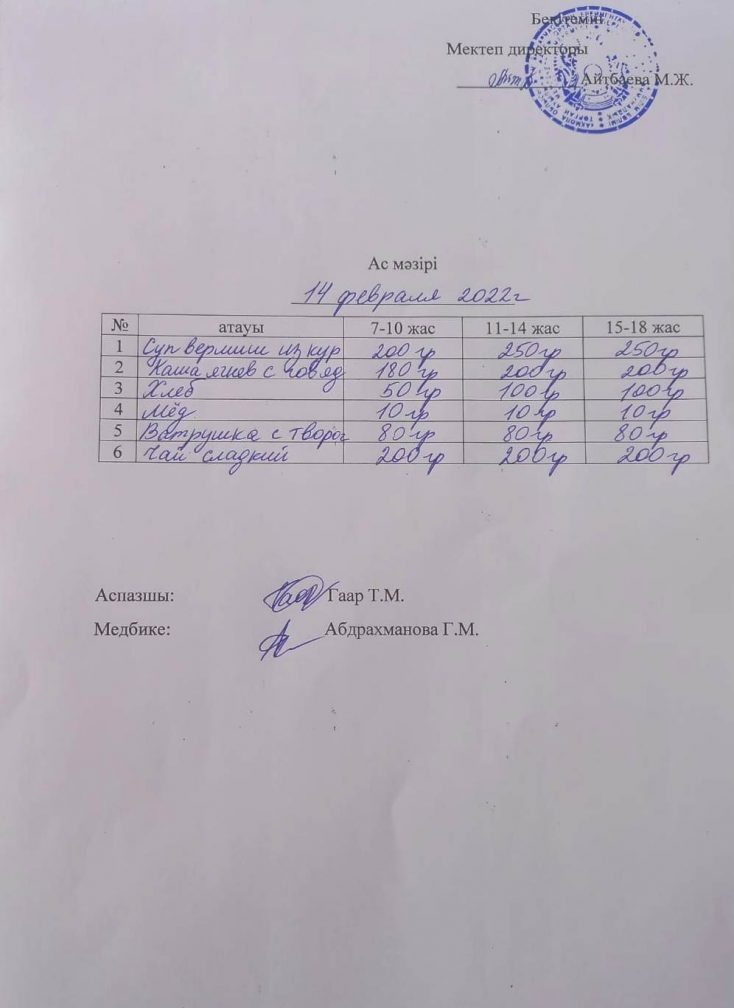 Бекітемін
Мектеп директоры
Айтбаева М.Ж.
Ас мәзірі
14 февраля 2022г
№ атауы 7-10 жас 11-14 жас 15-18 жас
1 Суп вермиши из кур 200 гр 250 гр 250 гр
2 Каша ячнев с говяд 180 гр 200 гр 200 гр
3 Хлеб 50 гр 100 гр 100 гр
4 Мёд 10 гр 10 гр 10 гр
5 Ватрушка с творог 80 гр 80 гр 80 гр
6 Чай сладкий 200 гр 200 гр 200 гр
Аспазшы: Гаар Т.М.
Медбике: Абдрахманова Г.М.